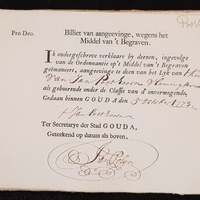 Pro Deo.
Billiet van aangeevinge, wegens het
Middel van 't Begraven.
Ik ondergeschreve verklaare by deezen, ingevolge
van de Ordonnantie op't Middel van 't Begraven
geëmaneert, aangeevinge te doen van het Lyk van 't Kind
Van Jan
als gehoorende onder de Classe van d'onvermogende,
Gedaan binnen GOUDA den 5 October 1773.
Jan
Ter Secretarye der Stad GOUDA,
Getoekend op datum als boven.